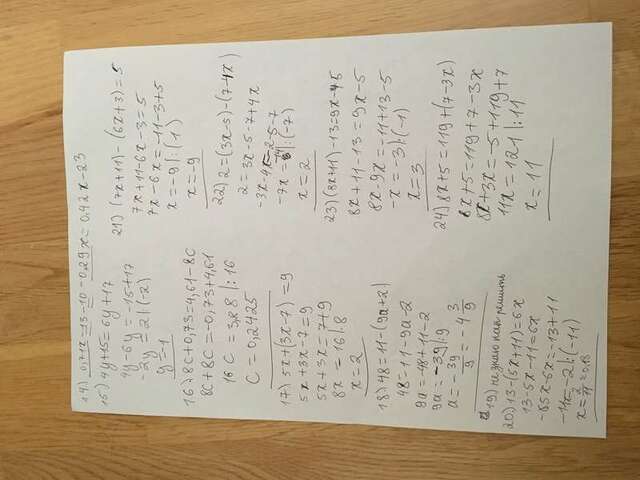 14) 0,71x-13-10-0,29x=0,42x-23
15) 4y+15=6y+17
4y-6y=-15+17
-2y=2|:(-2)
y=-1
16) 8c+0,73=4,61-8c
8c+8c=-0,73+4,61
16c=3,88|:16
c=0,2425
17) 5x+(3x-7)=9
5x+3x-7=9
5x+3x=7+9
8x=16|:8
x=2
18) 48=11-(9a+2)
48=11-9a-2
9a=-48+11-2
9a=-39|:9
a=-39/9=-4 3/9
19) не знаю как решить
20) 13-(5x+11)=6x
13-5x-11=6x
x=2/11=0,18
21) (7x+11)-(6x+3)=5
7x+11-6x-3=5
7x-6x=-11-3+5
x=-9|:(1)
x=-9
22) 2=(3x-5)-(7-4x)
2=3x-5-7+4x
-3x-4x=-2-5-7
x=2
23) (8x+11)-13=9x-5
8x+11-13=9x-5
8x-9x=-11+13-5
-x=-3|:(-1)
x=3
24) 8x+5=119+(7-3x)
8x+5=119+7-3x
8x+3x=-5+119+7
11x=121|:11
x=11